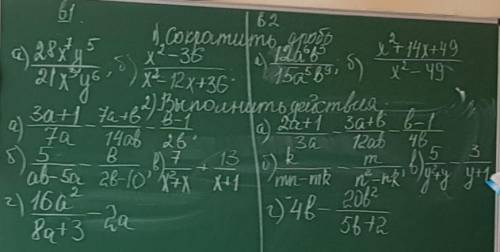 в1 в2
1) Сократить дробь
а) 28x⁷y⁵/21x⁵y⁶, б) x²-36/x²-12x+36. а) 12a⁶b³/15a⁵b⁹; б) x²+14x+49/x²-49
2) Выполнить действия
а) 3a+1/7a - 7a+b/14ab - b-1/2b. а) 2a+1/3a - 3a+b/12ab - b-1/4b
б) 5/ab-5a - b/2b-10, в) 7/x²+x + 13/x+1 б) k/mn-mk - m/n²-nk, в) 5/y²+y - 3/y+1
г) 16a²/8a+3 - 2a г) 4b - 20b²/5b+2